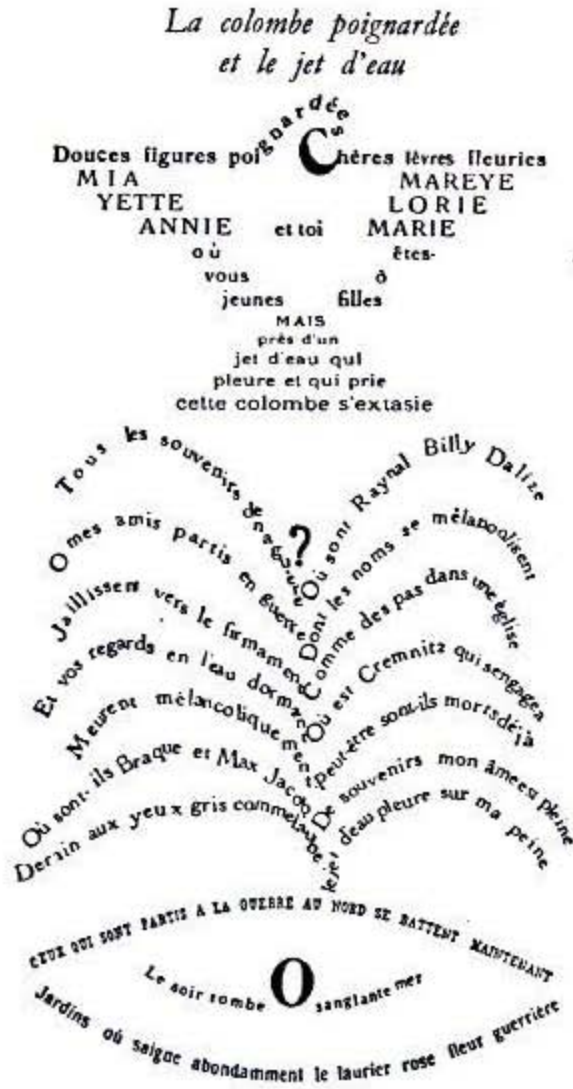 La colombe poignardée
et le jet d'eau
Douces figures poignardées
Chères lèvres fleuries
MIA MAREYE
YETTE LORIE
ANNIE et toi MARIE
où êtes-
vous ô
jeunes filles
MAIS
près d'un
jet d'eau qui
pleure et qui prie
cette colombe s'extasie
Tous les souvenirs de naguère
O mes amis partis en guerre
Jaillissent vers le firmament
Et vos regards en l'eau dormant
Meurent mélancoliquement
Où sont-ils Braque et Max Jacob
Derain aux yeux gris comme l'aube
?
Où sont Raynal Billy Dalize
Dont les noms se mélancolisent
Comme des pas dans une église
Où est Cremnitz qui s'engagea
Peut-être sont-ils morts déjà
De souvenirs mon âme est pleine
le jet d'eau pleure sur ma peine
CEUX QUI SONT PARTIS A LA GUERRE AU NORD SE BATTENT MAINTENANT
Le soir tombe O sanglante mer
Jardins où saigne abondamment le laurier rose fleur guerrière